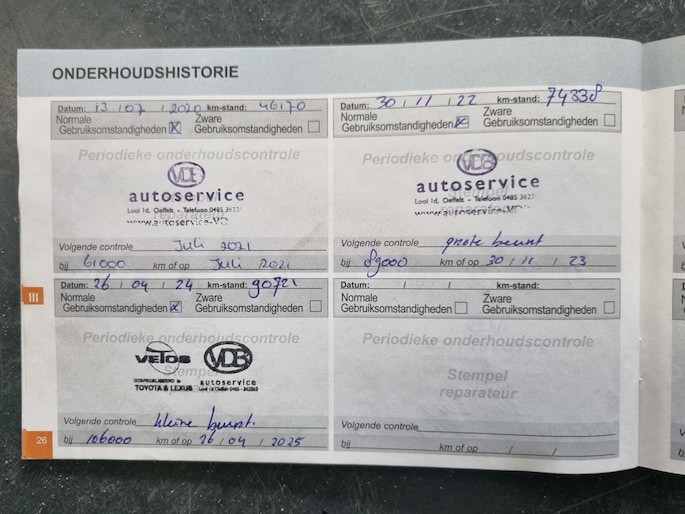 ONDERHOUDSHISTORIE
Datum: 13 / 07 / 2020 km-stand: 46170
Normale Gebruiksomstandigheden X Zware Gebruiksomstandigheden
Periodieke onderhoudscontrole
VDB
autoservice
Looi 1d, Oeffelt - Telefoon 0485 3622
www.autoservice-VD
reparateur
Volgende controle Juli 2021
bij 61000 km of op Juli 2021
Datum: 30 / 11 / 22 km-stand: 74338
Normale Gebruiksomstandigheden X Zware Gebruiksomstandigheden
Periodieke onderhoudscontrole
VDB
autoservice
Looi 1d, Oeffelt - Telefoon 0485 362
www.autoservice-VD
reparateur
Volgende controle grote beurt
bij 89000 km of op 30 / 11 / 23
III
Datum: 26 / 04 / 24 km-stand: 90721
Normale Gebruiksomstandigheden X Zware Gebruiksomstandigheden
Periodieke onderhoudscontrole
VETOS VDB
Stempel
GESPECIALISEERD in
TOYOTA & LEXUS autoservice
Volgende controle kleine beurt.
bij 106000 km of op 26 / 04 / 2025
Datum: / / km-stand:
Normale Gebruiksomstandigheden Zware Gebruiksomstandigheden
Periodieke onderhoudscontrole
Stempel
reparateur
Volgende controle
bij km of op / /
26